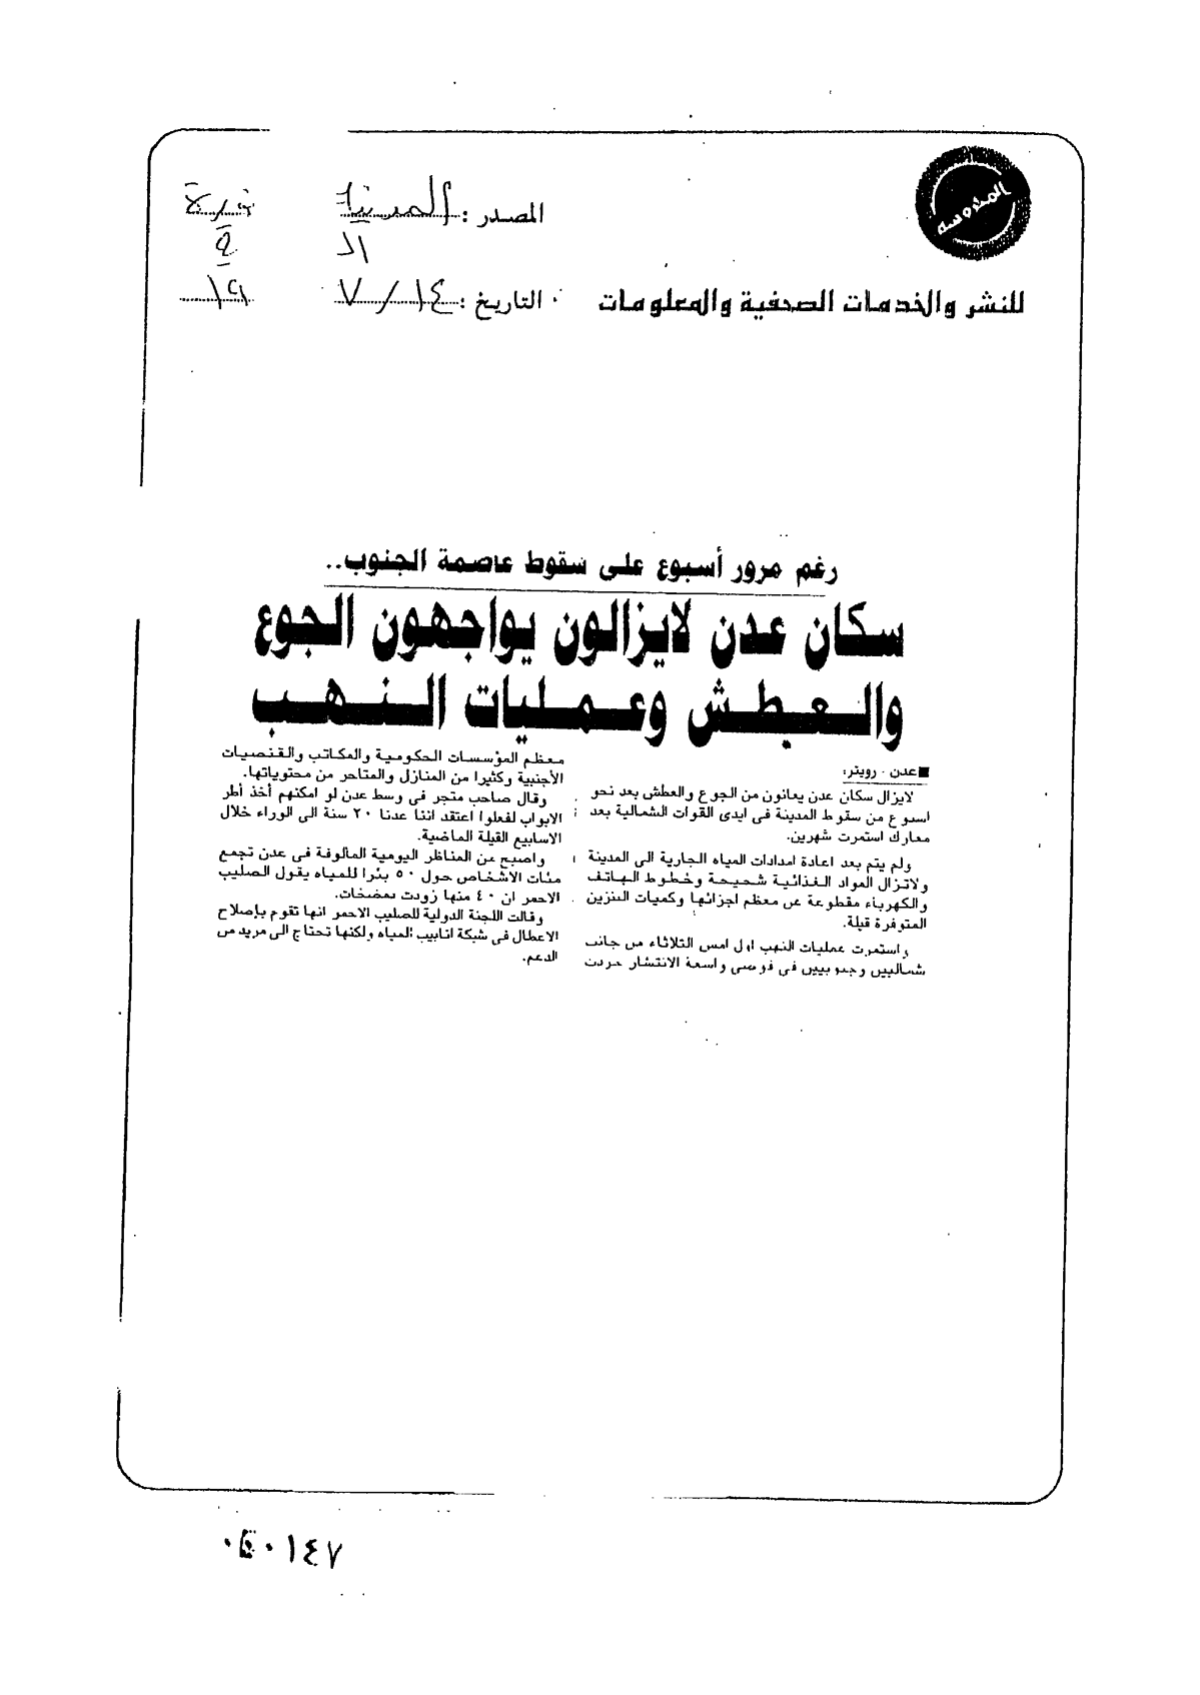 المحروسة
المصدر : المدينة
التاريخ : ١٤ / ٧
للنشر والخدمات الصحفية والمعلومات
رغم مرور أسبوع على سقوط عاصمة الجنوب..
سكان عدن لايزالون يواجهون الجوع
والعطش وعمليات النهب
■ عدن - رويتر:
لايزال سكان عدن يعانون من الجوع والعطش بعد نحو
اسبوع من سقوط المدينة فى ايدى القوات الشمالية بعد
معارك استمرت شهرين.
ولم يتم بعد اعادة امدادات المياه الجارية الى المدينة
ولاتزال المواد الغذائية شحيحة وخطوط الهاتف
والكهرباء مقطوعة عن معظم اجزائها وكميات البنزين
المتوفرة قيلة.
واستمرت عمليات النهب اول امس الثلاثاء من جانب
شماليين وجنوبيين فى فوضى واسعة الانتشار جردت
معظم المؤسسات الحكومية والمكاتب والقنصيات
الأجنبية وكثيرا من المنازل والمتاجر من محتوياتها.
وقال صاحب متجر فى وسط عدن لو امكنهم أخذ أطر
الابواب لفعلوا اعتقد اننا عدنا ٢٠ سنة الى الوراء خلال
الاسابيع القيلة الماضية.
واصبح من المناظر اليومية المألوفة فى عدن تجمع
مئات الاشخاص حول ٥٠ بئرا للمياه يقول الصليب
الاحمر ان ٤٠ منها زودت بمضخات.
وقالت اللجنة الدولية للصليب الاحمر انها تقوم بإصلاح
الاعطال فى شبكة انابيب المياه ولكنها تحتاج الى مريد من
الدعم.